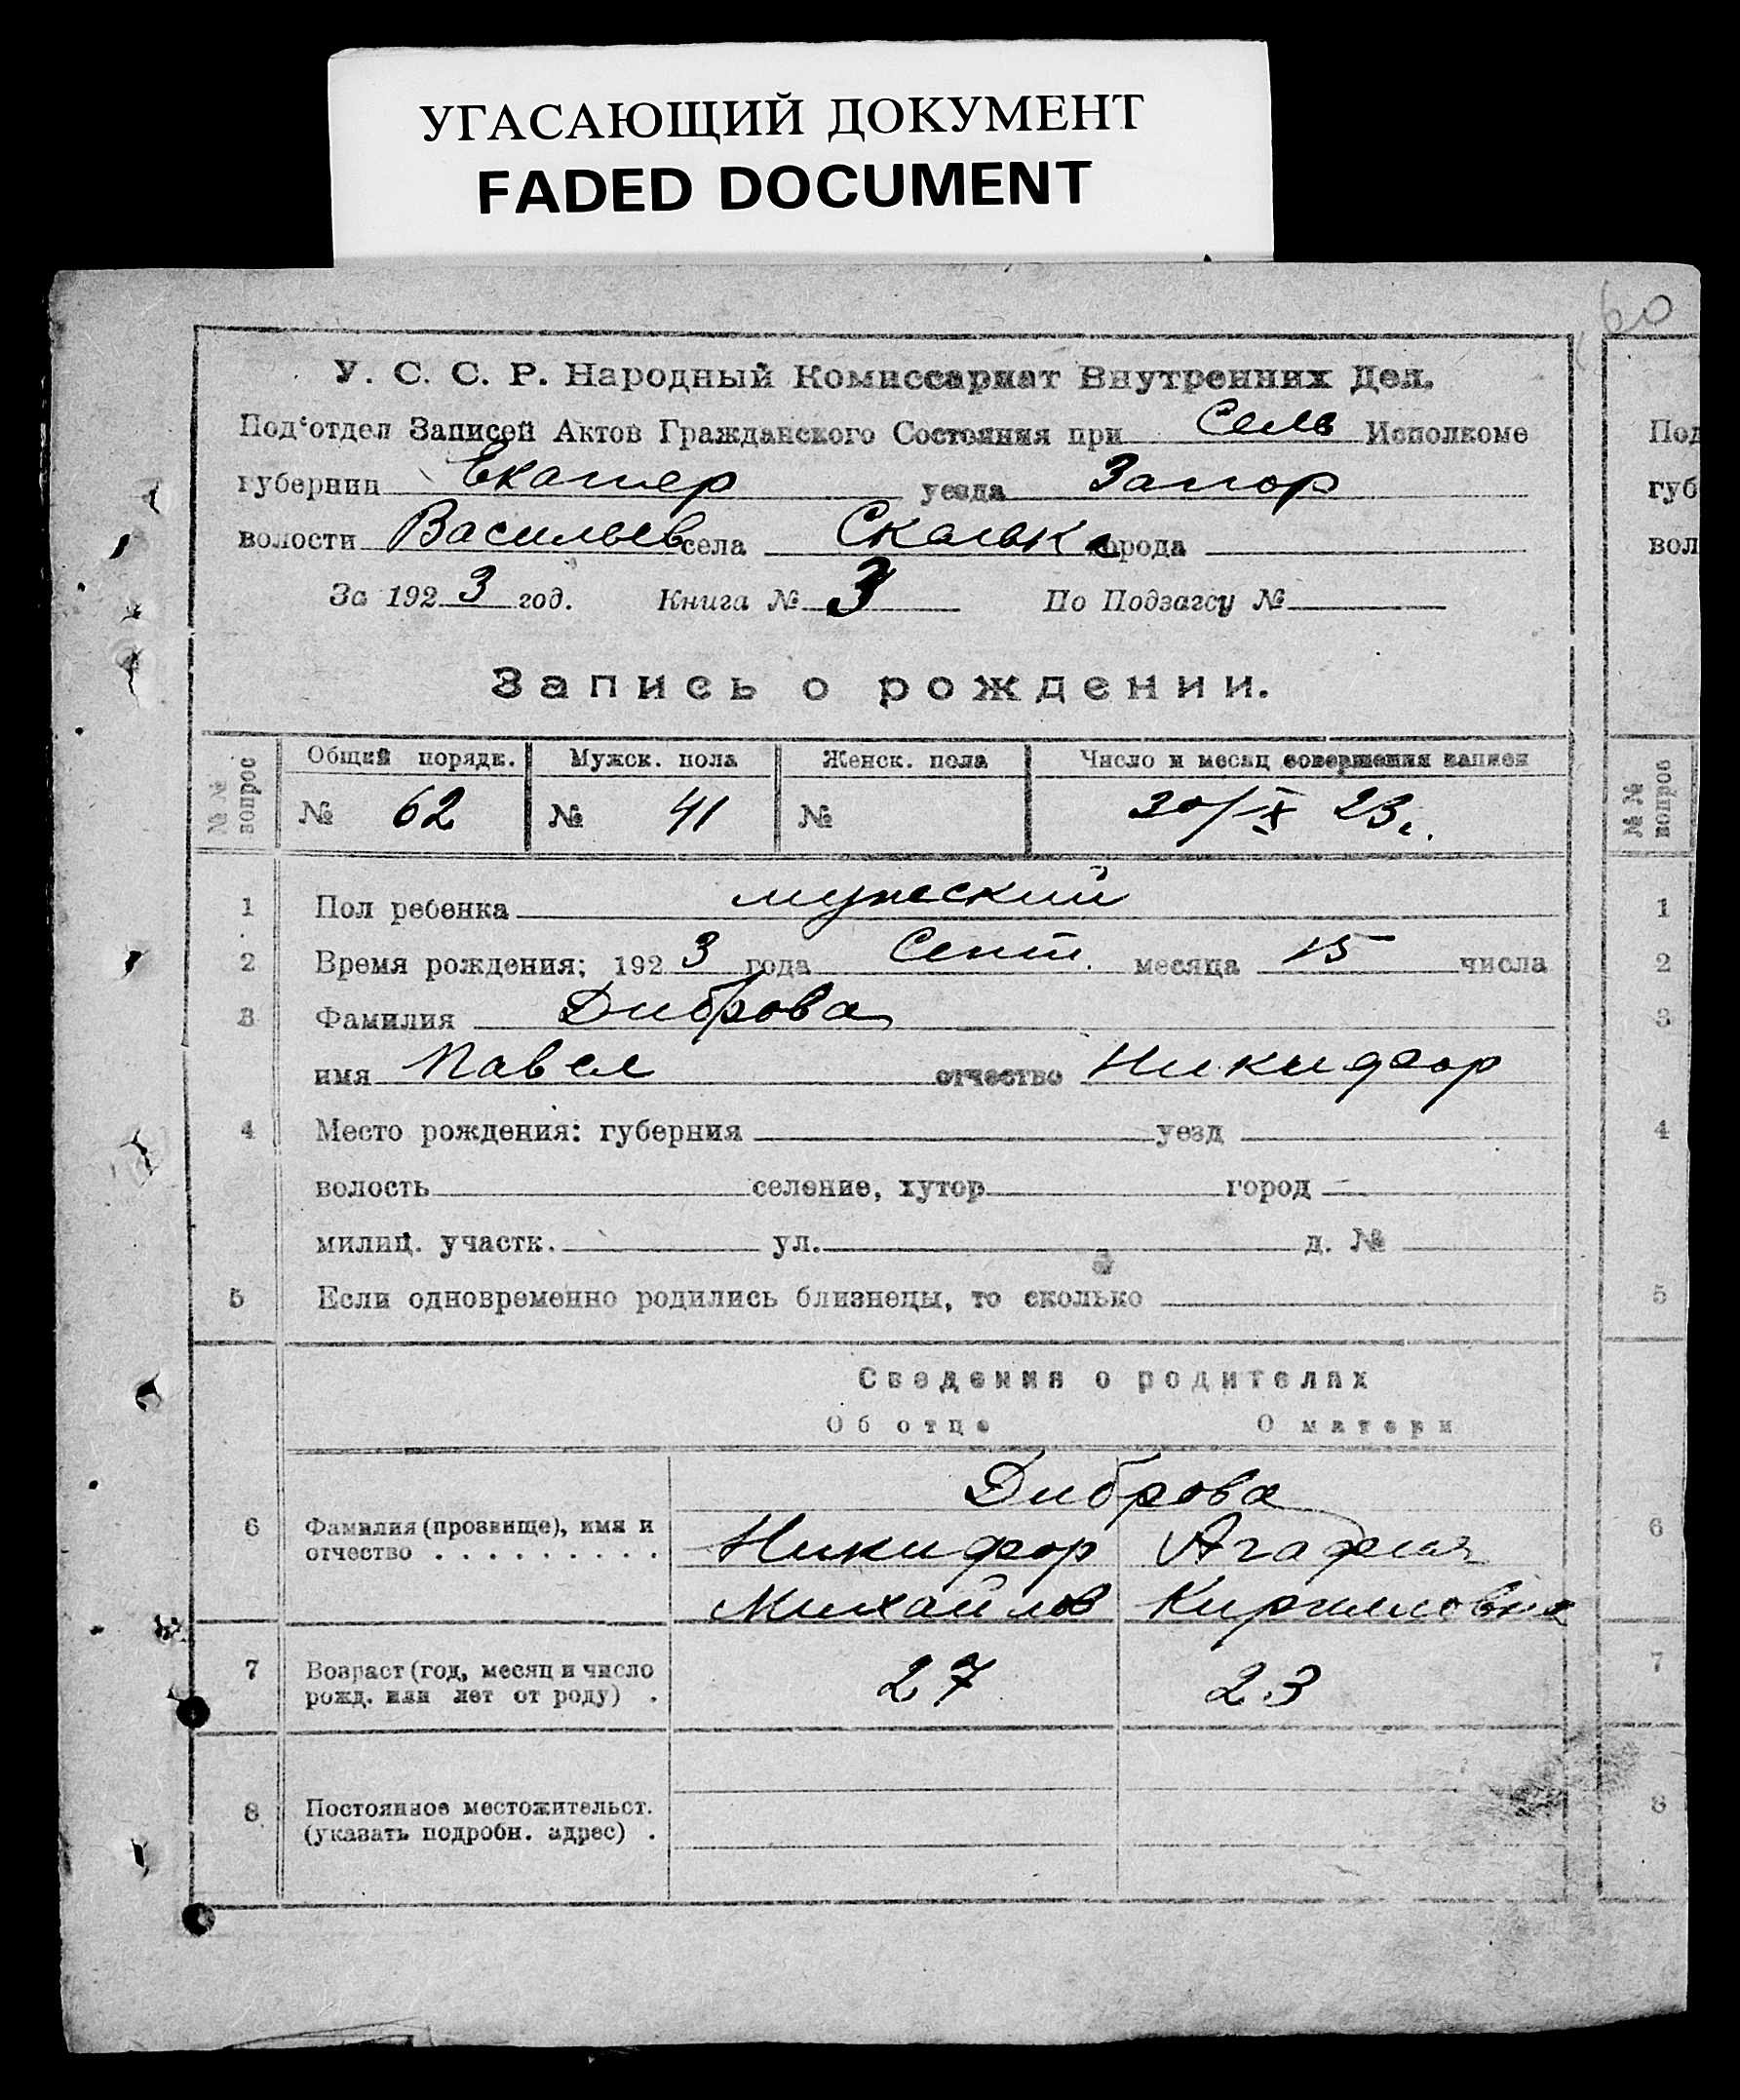 УГАСАЮЩИЙ ДОКУМЕНТ
FADED DOCUMENT
60
У. С. С. Р. Народный Комиссариат Внутренних Дел.
Под'отдел Записей Актов Гражданского Состояния при Сель Исполкоме
губернии Екатер уезда Запор
волости Васильев села Скельк города
За 1923 год. Книга № 3 По Подзагсу №
Запись о рождении.
№№ вопрос Общий порядк. Мужск. пола Женск. пола Число и месяц совершения записи
№ 62 № 41 № 20/IX 23 г.
1 Пол ребенка мужеский
2 Время рождения; 1923 года Сент. месяца 15 числа
3 Фамилия Диброва
имя Павел отчество Никифор
4 Место рождения: губерния уезд
волость селение, хутор город
милиц. участк. ул. д. №
5 Если одновременно родились близнецы, то сколько
Сведения о родителях
Об отце О матери
Диброва
6 Фамилия (прозвище), имя и Никифор Агафия
отчество . . . . . . . . . Михайлов Кирилловна
7 Возраст (год, месяц и число 27 23
рожд. или лет от роду) .
8 Постоянное местожительст.
(указать подробн. адрес) .
Под
губ
вол
№№ вопроб
1
2
3
4
5
6
7
8